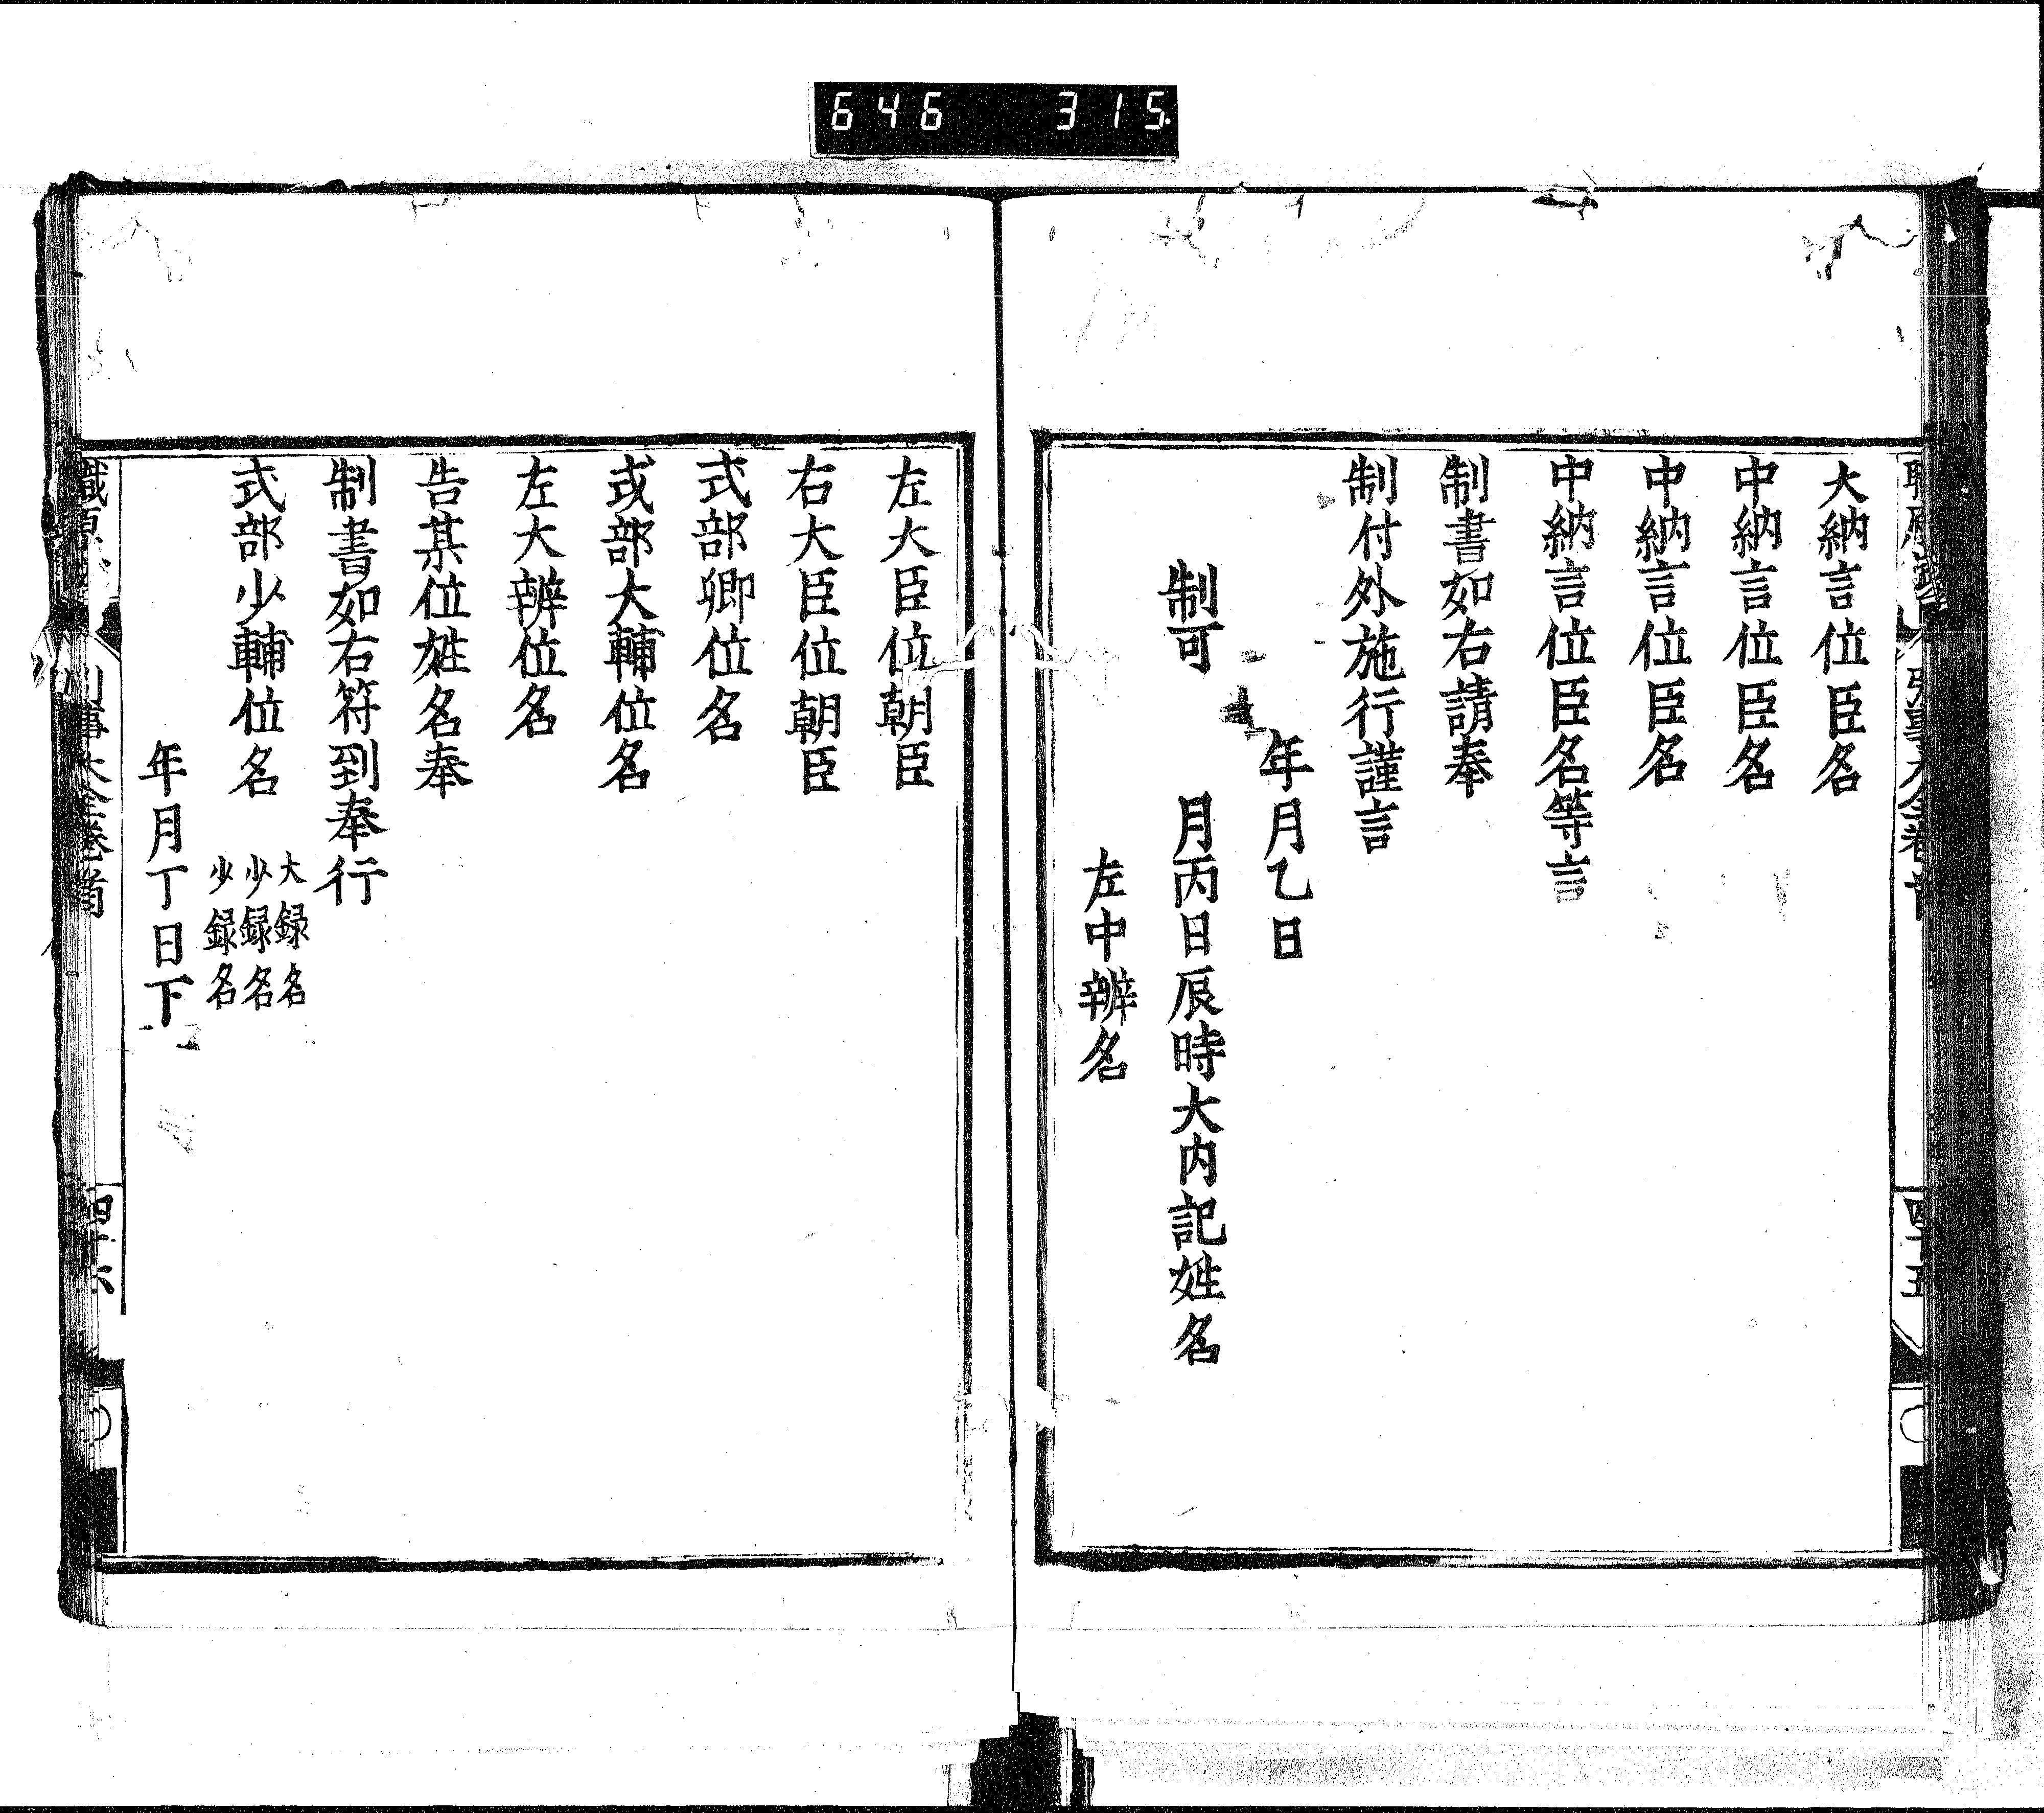 646 315
大納言位臣名
中納言位臣名
中納言位臣名
中納言位臣名等言
制書如右請奉
制付外施行謹言
年月乙日
制可
月丙日辰時大内記姓名
左中辨名
四十五
左大臣位朝臣
右大臣位朝臣
式部卿位名
式部大輔位名
左大辨位名
告某位姓名奉
制書如右符到奉行
式部少輔位名
大録名
少録名
少録名
年月丁日下
四十六